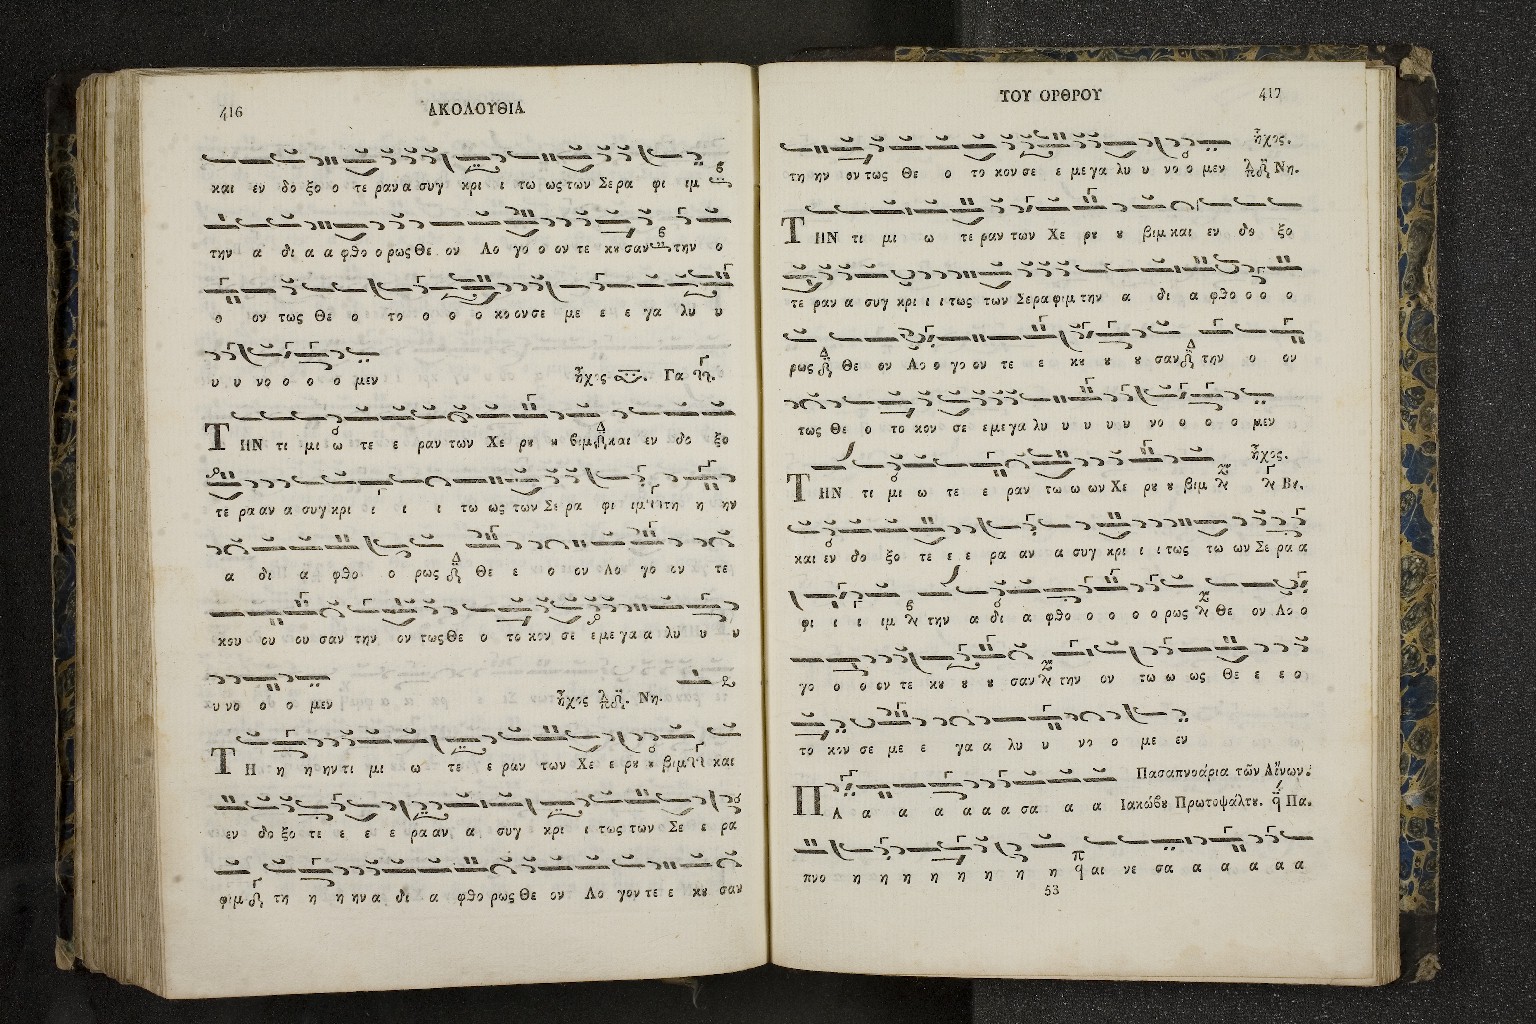 416 ΑΚΟΛΟΥΘΙΑ
και εν δο ξο ο τε ραν α συγ κρι ι τω ως των Σε ρα φι ιμ
την α δι α α φθο ο ρως Θε ον Λο γο ο ον τε κȣ σαν την ο
ο ον τως Θε ο το ο ο ο κο ον σε με ε ε γα λυ υ
υ υ νο ο ο ο μεν ἦχος Γα
ΤΗΝ τι μι ω τε ε ραν των Χε ρȣ ȣ βιμ και εν δο ξο
τε ρα αν α συγ κρι ι ι ι τω ως των Σε ρα φι ιμ τη η ην
α δι α φθο ο ρως Θε ε ο ον Λο γο ον τε
κου ου ου σαν την ον τως Θε ο το κον σε ε με γα α λυ υ υ
υ νο ο ο μεν ἦχος Νη.
ΤΗ η η ην τι μι ω τε ε ραν των Χε ε ρȣ ȣ βιμ και
εν δο ξο τε ε ε ε ρα αν α συγ κρι ι τως των Σε ε ρα
φιμ τη η η ην α δι α φθο ρως Θε ον Λο γον τε ε κȣ σαν
ΤΟΥ ΟΡΘΡΟΥ 417
ἦχος.
τη ην ον τως Θε ο το κον σε ε με γα λυ υ νο ο μεν Νη.
ΤΗΝ τι μι ω τε ραν των Χε ρȣ ȣ βιμ και εν δο ξο
τε ραν α συγ κρι ι ι τως των Σε ρα φιμ την α δι α φθο ο ο ο
ρως Θε ον Λο ο γο ον τε ε κȣ ȣ ȣ σαν την ο ον
τως Θε ο το κον σε ε με γα λυ υ υ υ υ νο ο ο ο μεν
ἦχος.
ΤΗΝ τι μι ω τε ε ραν τω ω ων Χε ρȣ ȣ βιμ Βȣ.
και εν δο ξο τε ε ε ρα αν α συγ κρι ι ι τως τω ων Σε ρα α
φι ι ι ιμ την α δι α φθο ο ο ο ο ρως Θε ον Λο ο
γο ο ο ον τε κȣ ȣ ȣ σαν την ον τω ω ως Θε ε ε ο
το κον σε με ε γα α λυ υ νο ο με εν
Πασαπνοάρια τῶν Αἴνων.
ΠΑ α α α α α α σα α α Ιακώβȣ Πρωτοψάλτȣ. Πα.
πνο η η η η η η η η αι νε σα α α α α α
53